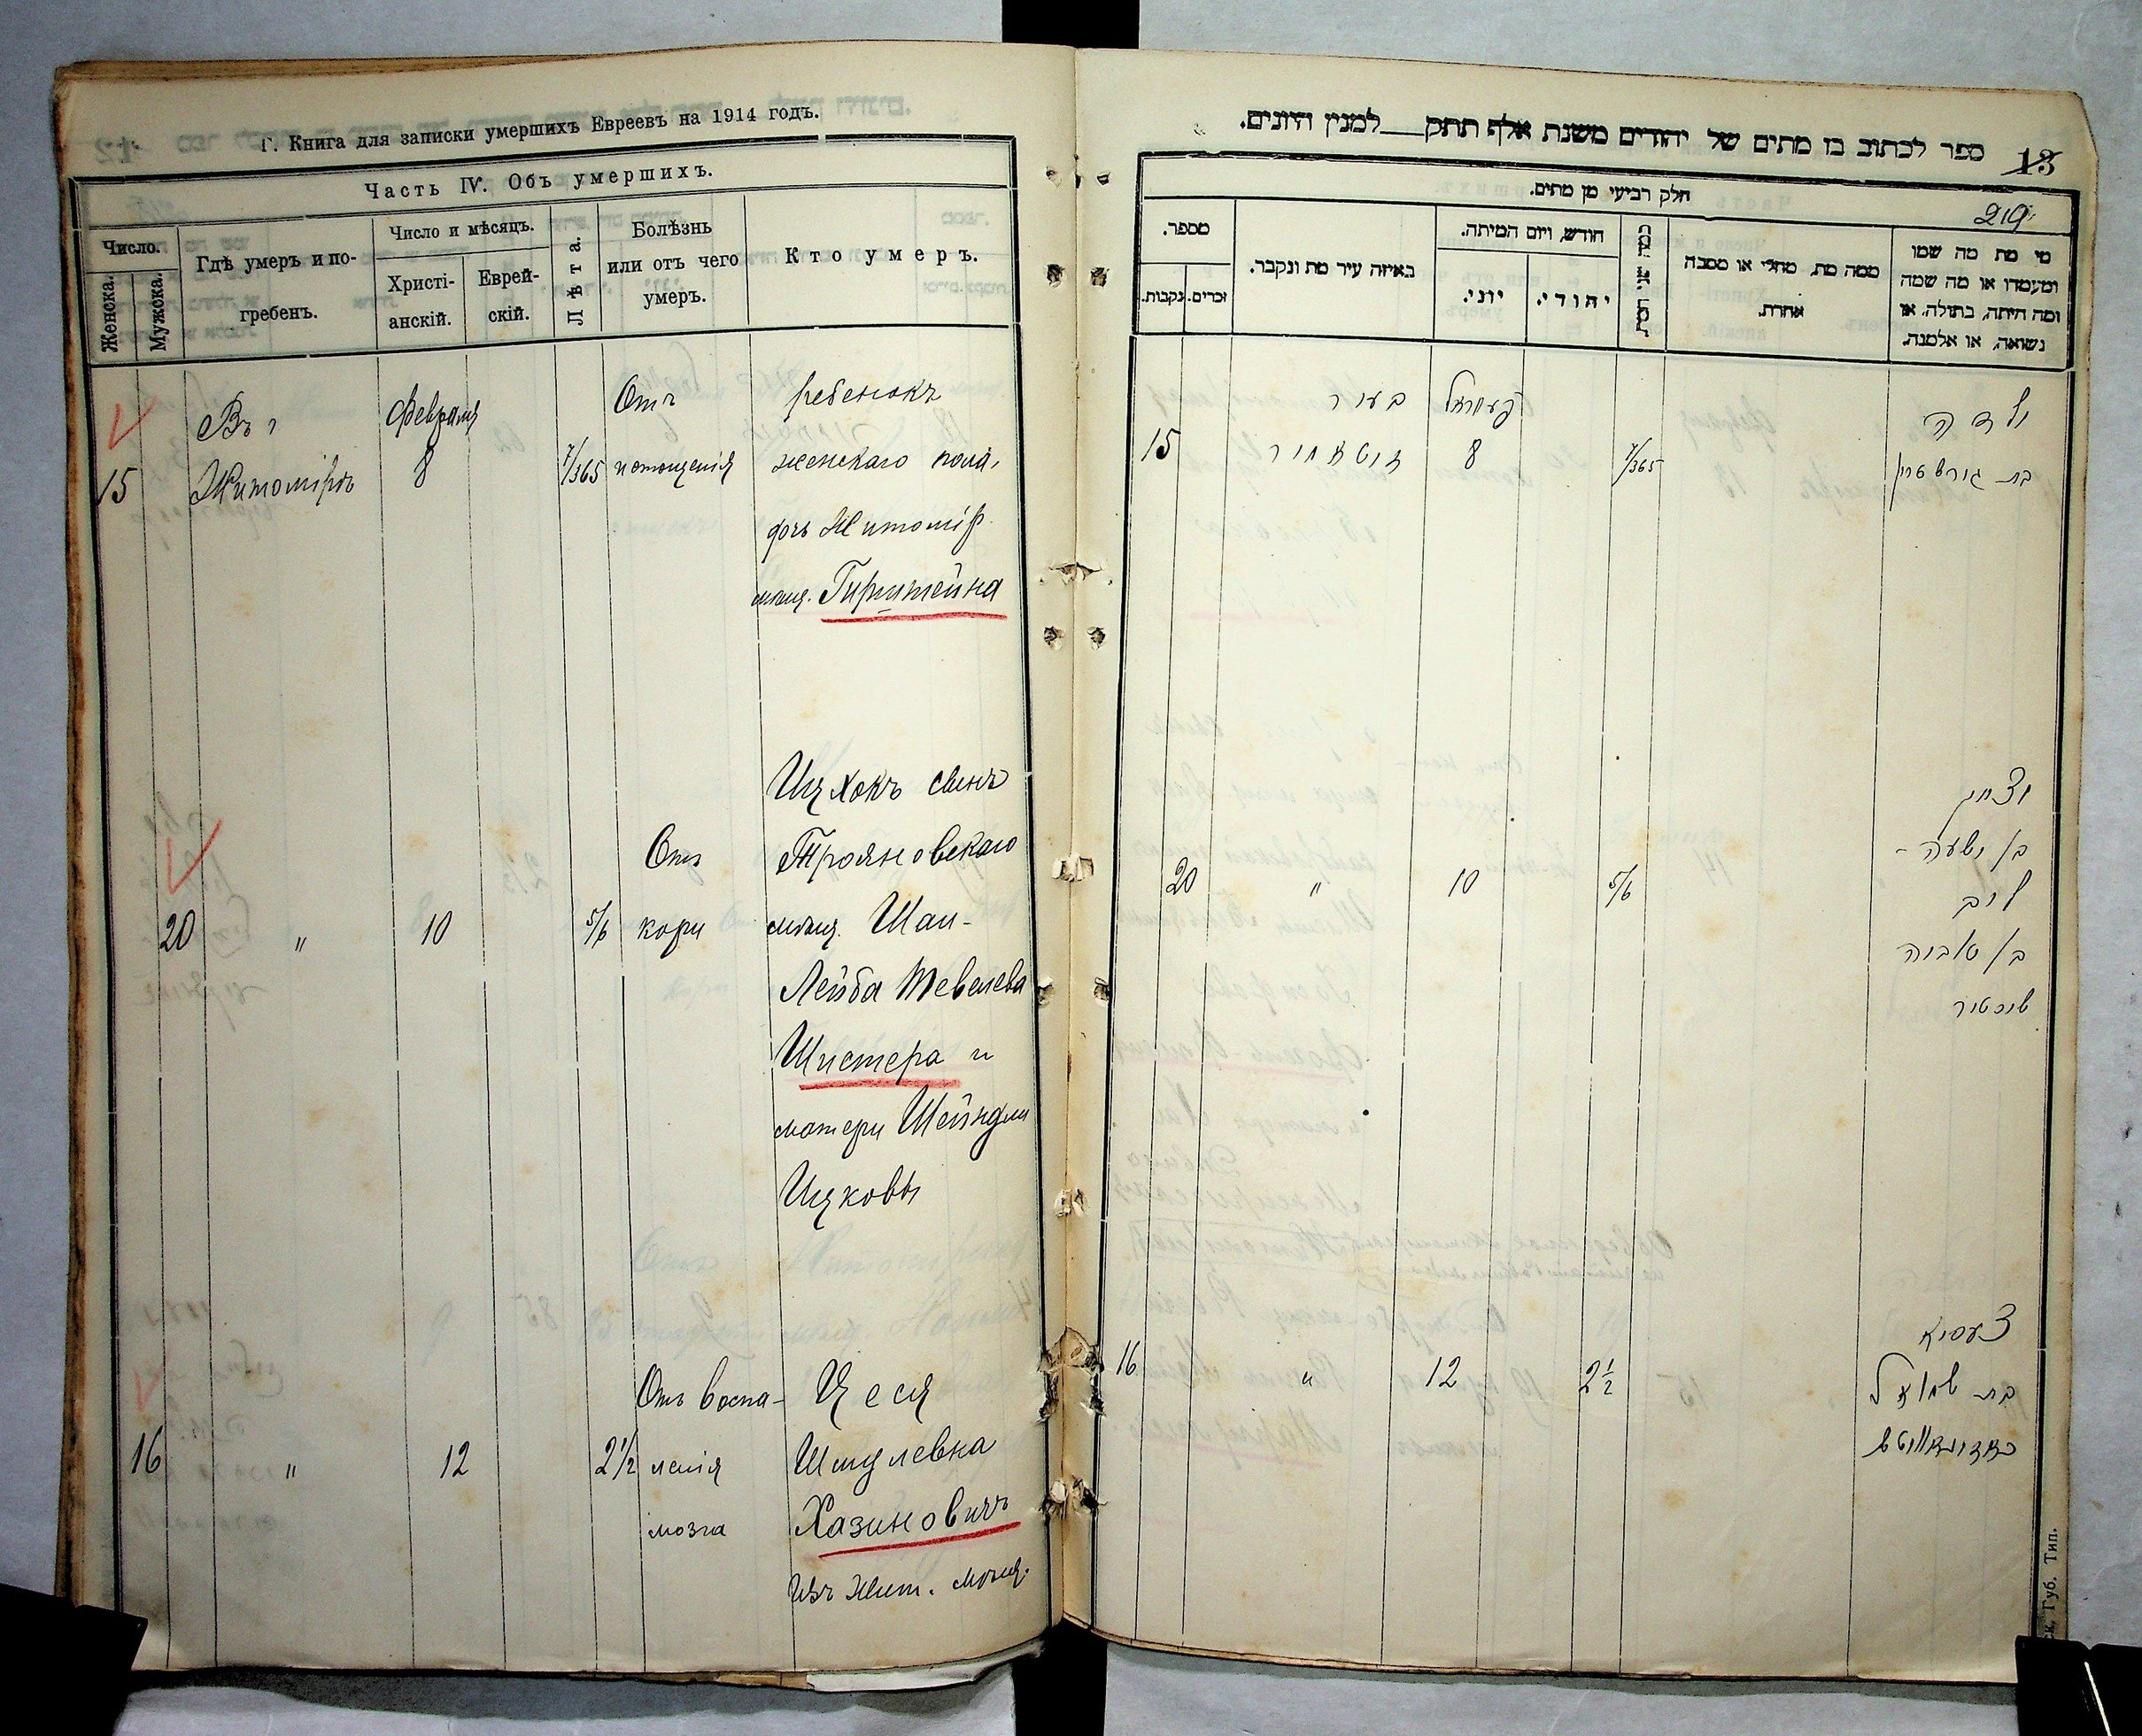 Г. Книга для записки умершихъ Евреевъ на 1914 годъ.
Часть IV. Объ умершихъ.
Число.
Женска.
Мужска.
Гдѣ умеръ и по-
гребенъ.
Число и мѣсяцъ.
Христі-
анскій.
Еврей-
скій.
Лѣта.
Болѣзнь
или отъ чего
умеръ.
Кто умеръ.
15
Въ г
Житомірѣ
Февраля
8
7/365
Отъ
истощенія
ребенокъ
женскаго пола,
дочь Житомір.
мѣщ. Гирштейна
20
"
10
5/6
Отъ
кори
Ицхокъ сынъ
Трояновскаго
мѣщ. Шаи-
Лейба Тевелева
Шистера и
матери Шейндли
Ицковы
16
"
12
2 1/2
Отъ воспа-
ленія
мозга
Цеся
Шмулевна
Хазиновичъ
изъ Жит. мѣщ.
ספר לכתוב בו מתים של יהודים משנת אלף תתק למנין היונים.
13
219
חלק רביעי מן מתים.
מספר.
נקבות.
זכרים.
באיזה עיר מת ונקבר.
חודש, ויום המיתה.
יוני.
יהודי.
כמה שני חייו
ממה מת, מחלי או מסבה
אחרת.
מי מת מה שמו
ומעמדו או מה שמה
ומה היתה, בתולה, או
נשואה, או אלמנה.
15
בעיר
זיטאמיר
8
7/365
ילדה
בת גירשטיין
20
"
10
5/6
יצחק
בן ישעה-
ליב
בן טביה
שיסטיר
16
"
12
2 1/2
צעסיא
בת שמואל
כאזינאוויטש
Губ. Тип.